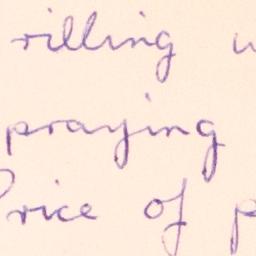 rilling
praying
Price of